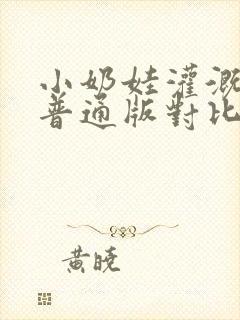 小奶娃灌溉
普通版對比
黃曉